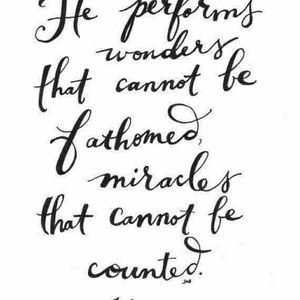 He performs
wonders
that cannot be
fathomed,
miracles
that cannot be
counted.